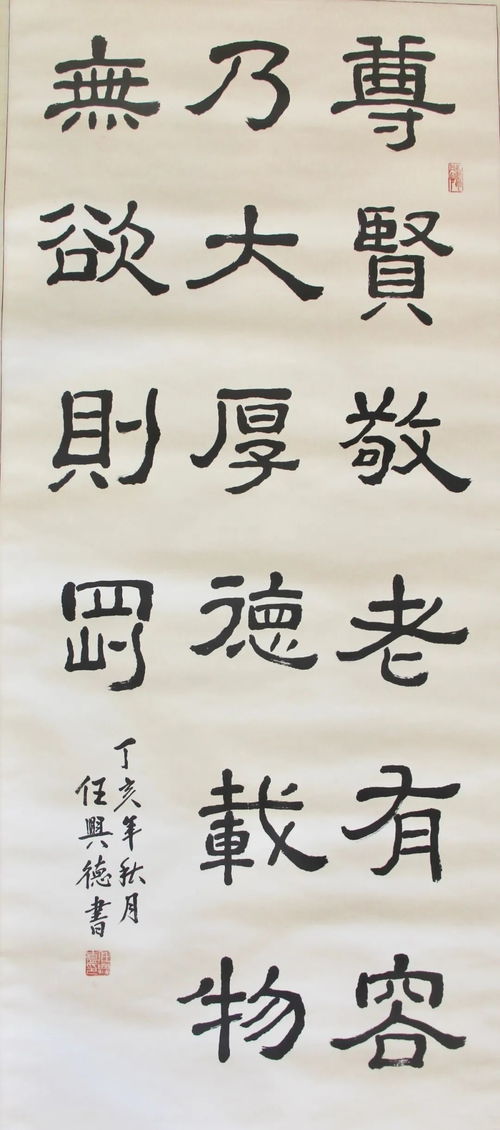 尊賢敬老有容
乃大厚德載物
無欲則罡
丁亥年秋月
任興德書